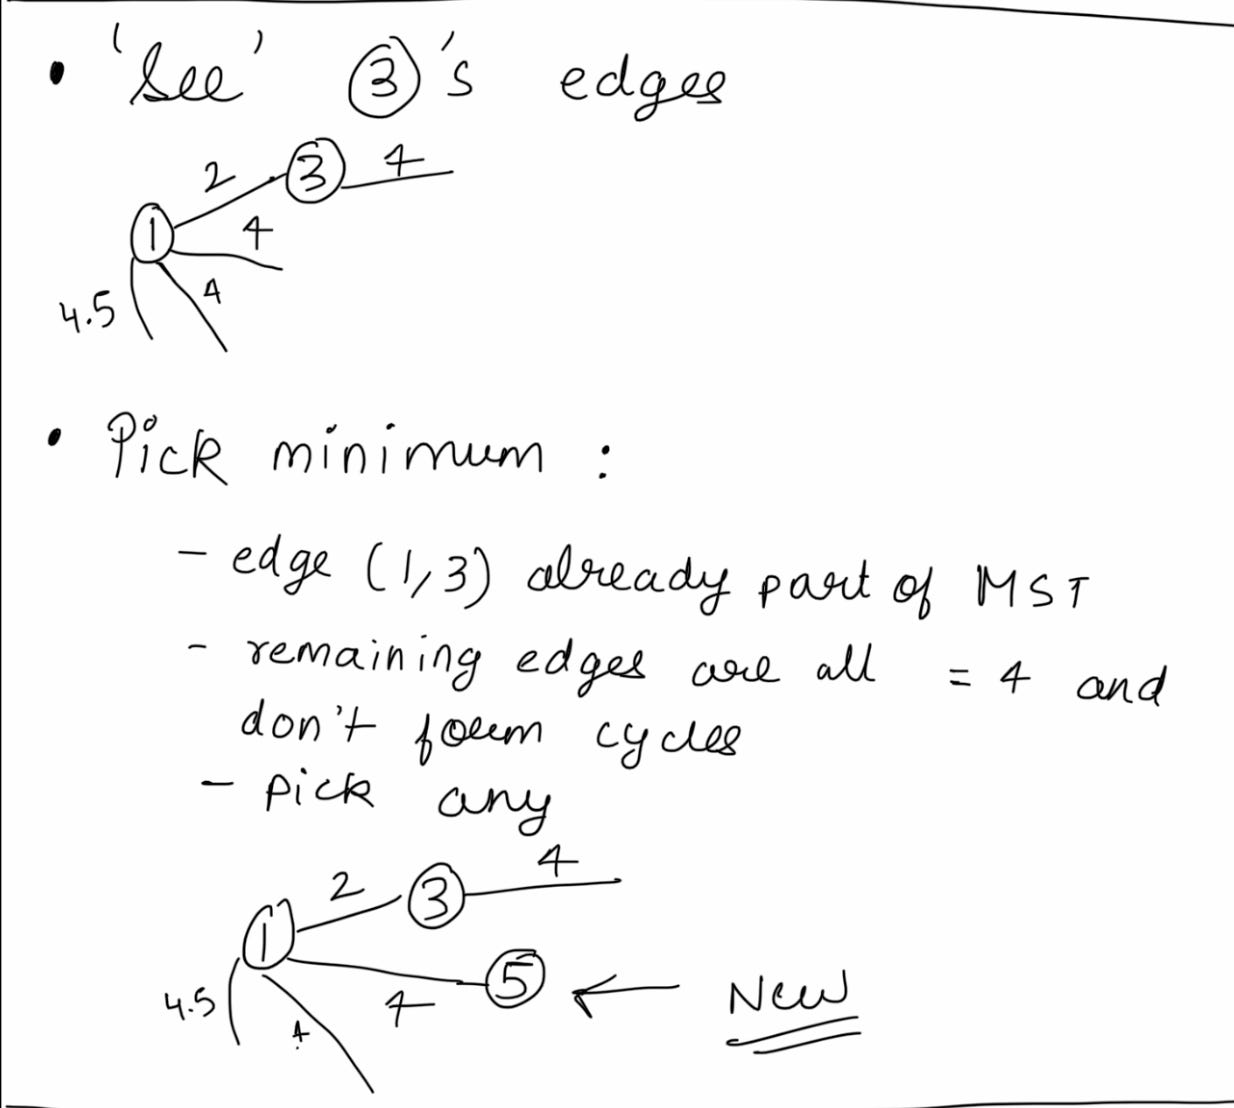 • 'See' ③'s edges
2 ③ 4
① 4
4.5 4
• Pick minimum :
- edge (1,3) already part of MST
- remaining edges are all = 4 and
don't form cycles
- pick any
4
2 ③
①
⑤ ← New
4.5 4 4